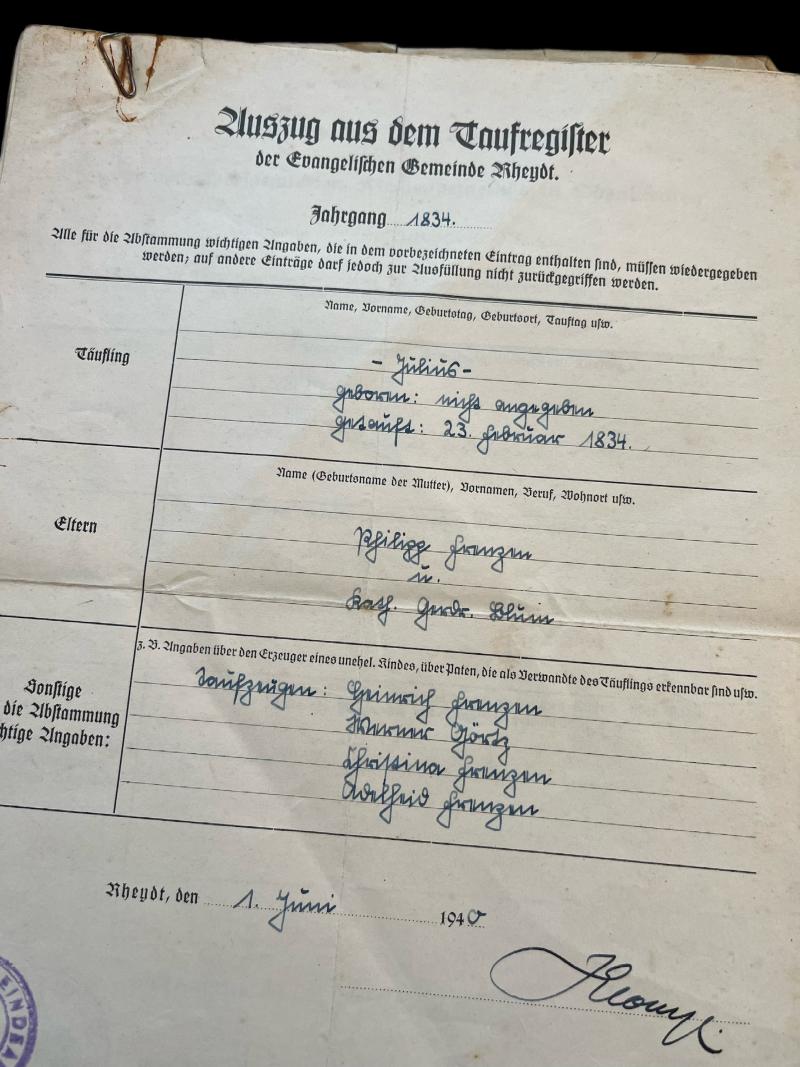 Auszug aus dem Taufregister
der Evangelischen Gemeinde Rheydt.
Jahrgang 1834.
Alle für die Abstammung wichtigen Angaben, die in dem vorbezeichneten Eintrag enthalten sind, müssen wiedergegeben
werden; auf andere Einträge darf jedoch zur Ausfüllung nicht zurückgegriffen werden.
Name, Vorname, Geburtstag, Geburtsort, Tauftag usw.
Täufling
- Julius -
geboren: nicht angegeben
getauft: 23. Februar 1834.
Name (Geburtsname der Mutter), Vornamen, Beruf, Wohnort usw.
Eltern
Philipp Frenzen
u.
Kath. Gerdr. Blum
z. B. Angaben über den Erzeuger eines unehel. Kindes, über Paten, die als Verwandte des Täuflings erkennbar sind usw.
Sonstige
die Abstammung
htige Angaben:
Taufzeugen: Heinrich Frenzen
Werner Görtz
Christina Frenzen
Adelheid Frenzen
Rheydt, den 1. Juni 1940
EINDEA